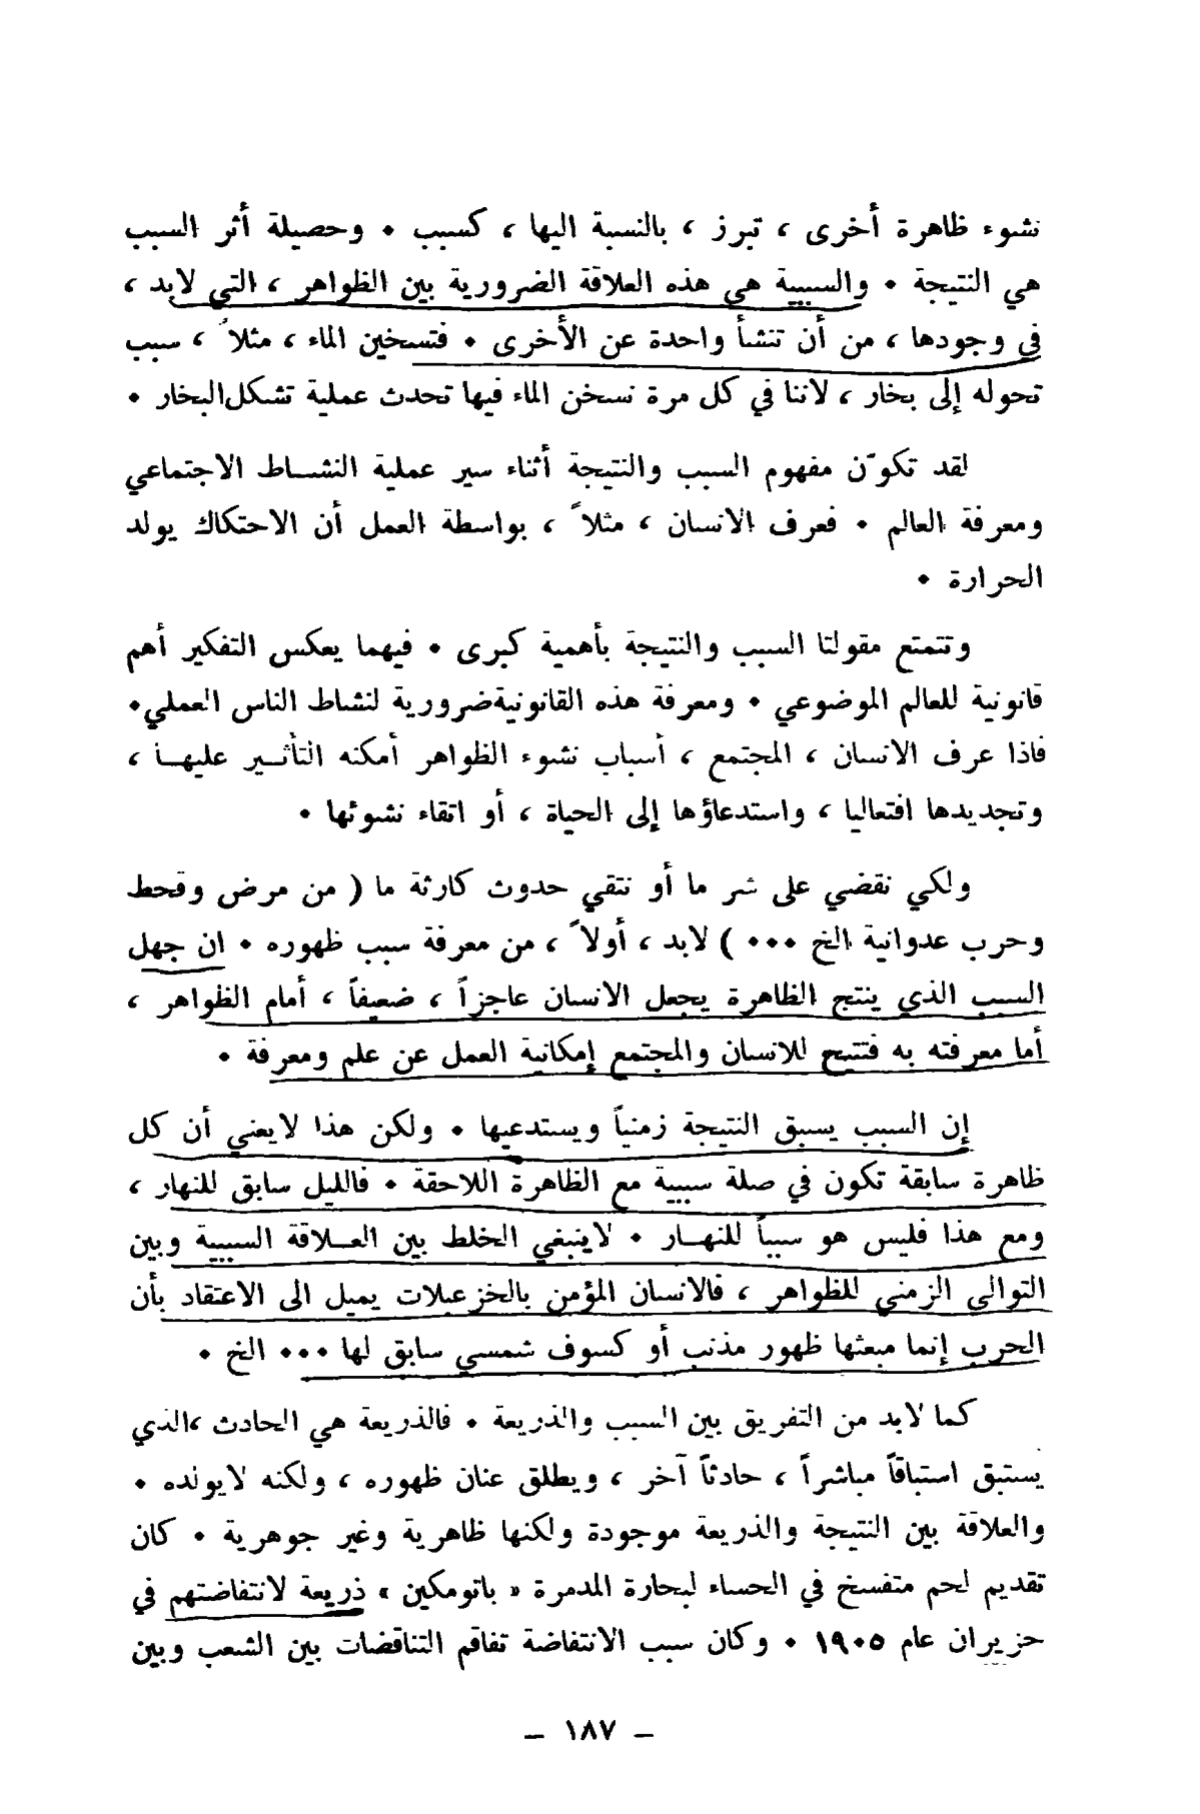 نشوء ظاهرة أخرى ، تبرز ، بالنسبة اليها ، كسبب . وحصيلة أثر السبب
هي النتيجة . والسببية هي هذه العلاقة الضرورية بين الظواهر ، التي لابد ،
في وجودها ، من أن تنشأ واحدة عن الأخرى . فتسخين الماء ، مثلاً ، سبب
تحوله إلى بخار ، لاننا في كل مرة نسخن الماء فيها تحدث عملية تشكل البخار .
لقد تكوّن مفهوم السبب والنتيجة أثناء سير عملية النشاط الاجتماعي
ومعرفة العالم . فعرف الانسان ، مثلاً ، بواسطة العمل أن الاحتكاك يولد
الحرارة .
وتتمتع مقولتا السبب والنتيجة بأهمية كبرى . فيهما يعكس التفكير أهم
قانونية للعالم الموضوعي . ومعرفة هذه القانونية ضرورية لنشاط الناس العملي .
فاذا عرف الانسان ، المجتمع ، أسباب نشوء الظواهر أمكنه التأثير عليها ،
وتجديدها افتعاليا ، واستدعاؤها إلى الحياة ، أو اتقاء نشوئها .
ولكي نقضي على شر ما أو نتقي حدوث كارثة ما ( من مرض وقحط
وحرب عدوانية الخ ... ) لابد ، أولاً ، من معرفة سبب ظهوره . ان جهل
السبب الذي ينتج الظاهرة يجعل الانسان عاجزاً ، ضعيفاً ، أمام الظواهر ،
أما معرفته به فتتيح للانسان والمجتمع إمكانية العمل عن علم ومعرفة .
إن السبب يسبق النتيجة زمنياً ويستدعيها . ولكن هذا لايعني أن كل
ظاهرة سابقة تكون في صلة سببية مع الظاهرة اللاحقة . فالليل سابق للنهار ،
ومع هذا فليس هو سبباً للنهار . لاينبغي الخلط بين العلاقة السببية وبين
التوالي الزمني للظواهر ، فالانسان المؤمن بالخزعبلات يميل الى الاعتقاد بأن
الحرب إنما مبعثها ظهور مذنب أو كسوف شمسي سابق لها ... الخ .
كما لابد من التفريق بين السبب والذريعة . فالذريعة هي الحادث ،الذي
يستبق استباقاً مباشراً ، حادثاً آخر ، ويطلق عنان ظهوره ، ولكنه لايولده .
والعلاقة بين النتيجة والذريعة موجودة ولكنها ظاهرية وغير جوهرية . كان
تقديم لحم متفسخ في الحساء لبحارة المدمرة « باتومكين » ذريعة لانتفاضتهم في
حزيران عام ١٩٠٥ . وكان سبب الانتفاضة تفاقم التناقضات بين الشعب وبين
– ١٨٧ –